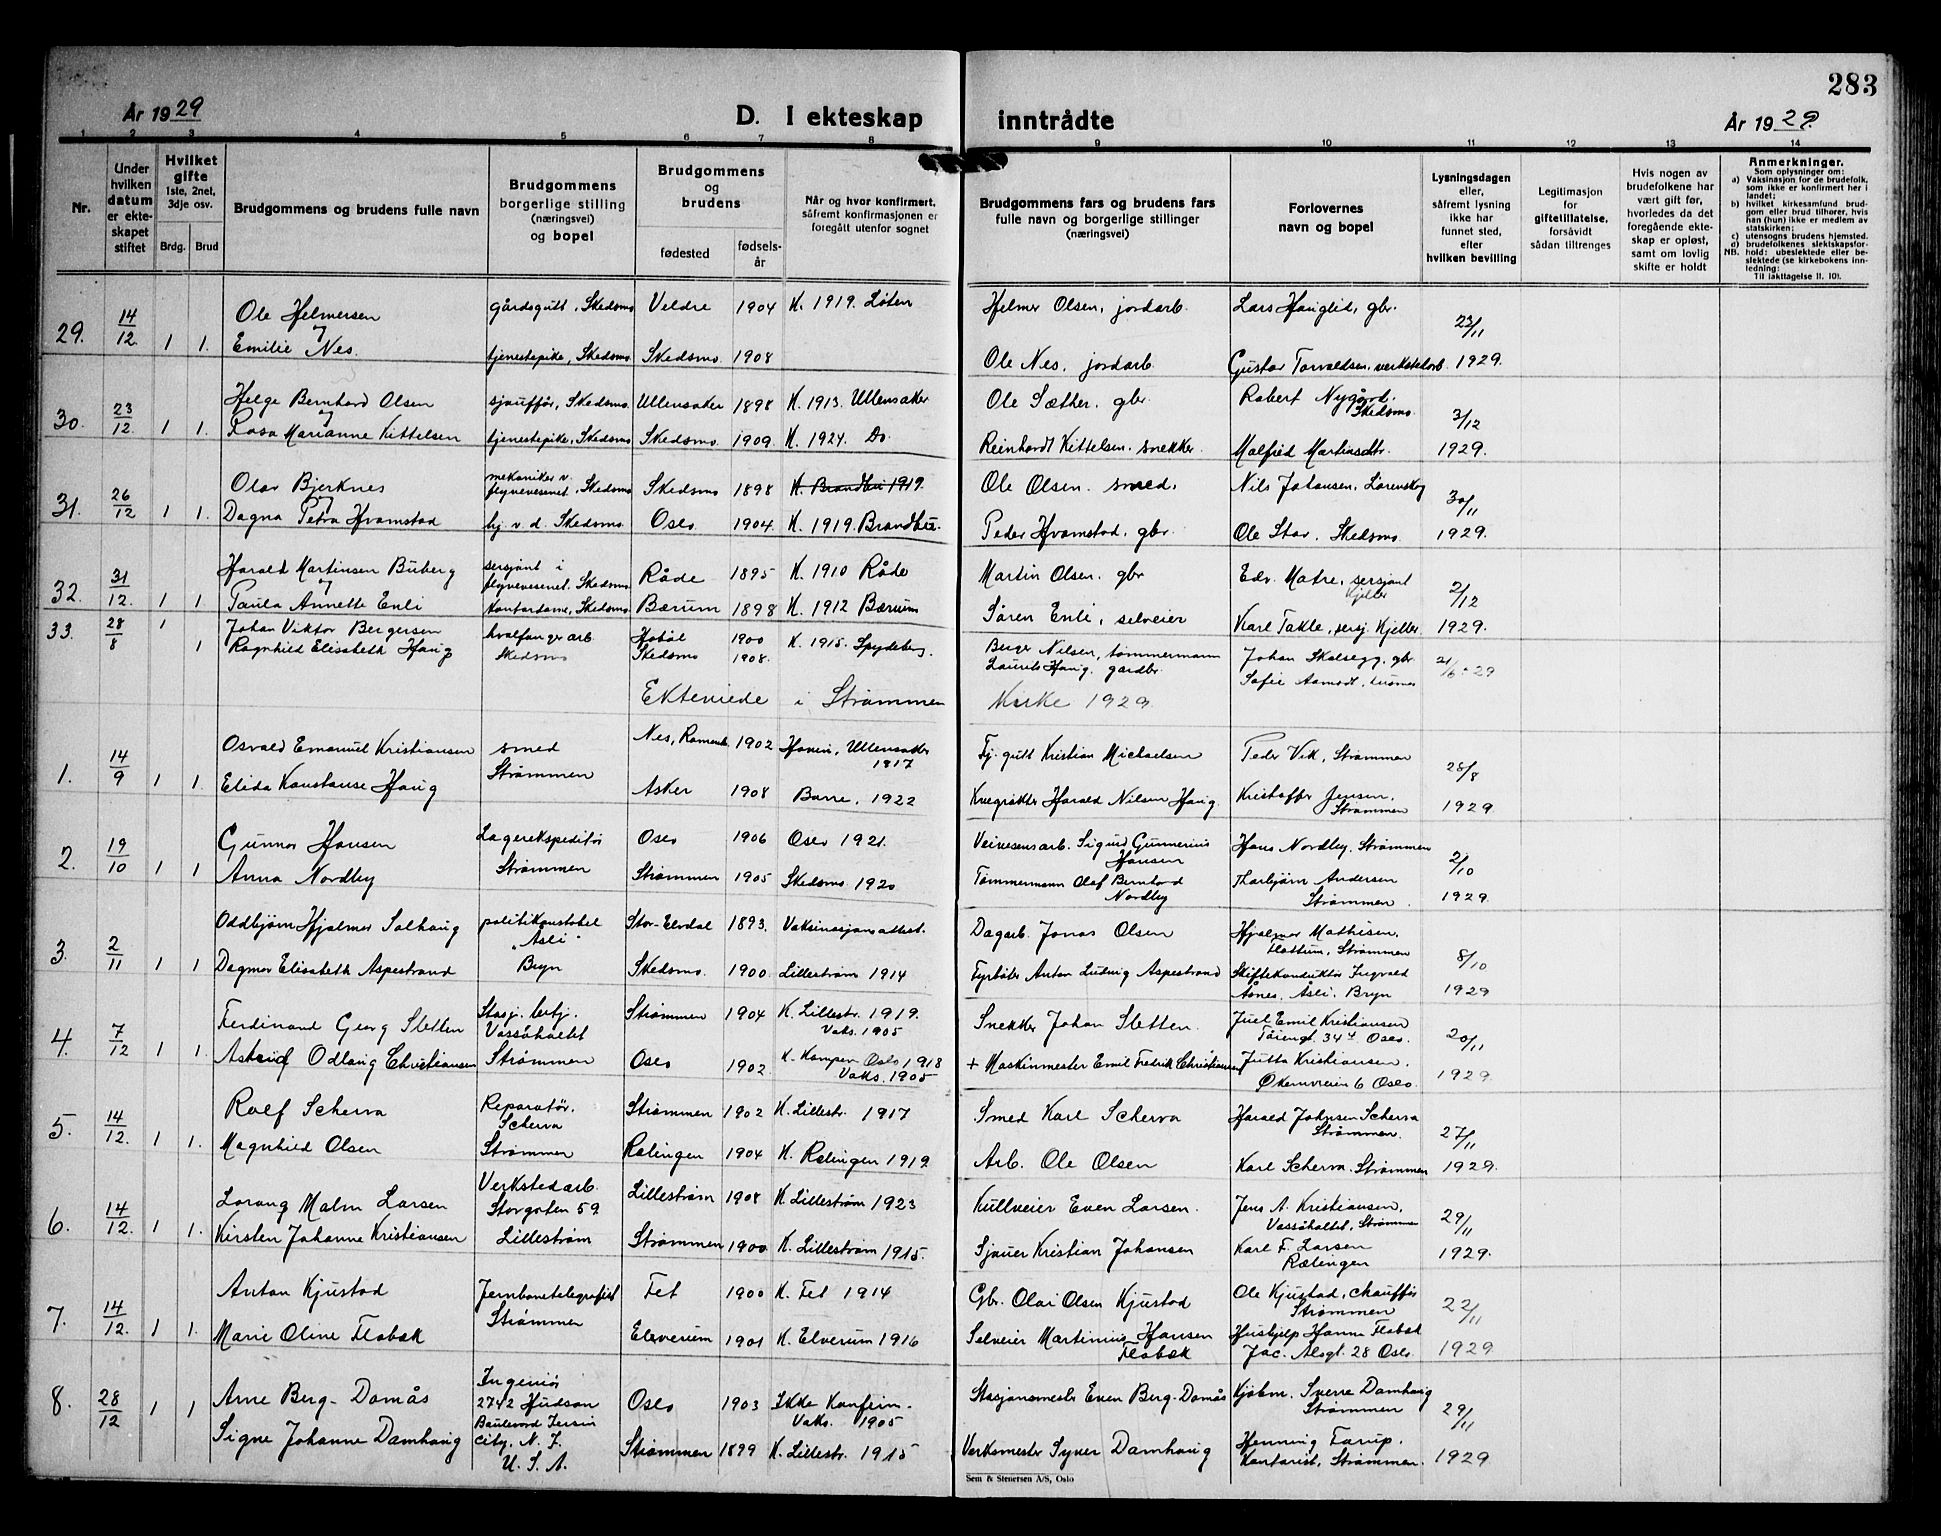 283
År 1929
D. I ekteskap inntrådte
År 1929.
1 2 3 4 5 6 7 8 9 10 11 12 13 14
Nr.
Under hvilken datum er ekteskapet stiftet
Hvilket gifte 1ste, 2net, 3dje osv.
Brdg. Brud
Brudgommens og brudens fulle navn
Brudgommens borgerlige stilling (næringsvei) og bopel
Brudgommens og brudens
fødested
fødselsår
Når og hvor konfirmert, såfremt konfirmasjonen er foregått utenfor sognet
Brudgommens fars og brudens fars fulle navn og borgerlige stillinger (næringsvei)
Forlovernes navn og bopel
Lysningsdagen eller, såfremt lysning ikke har funnet sted, efter hvilken bevilling
Legitimasjon for giftetillatelse, forsåvidt sådan tiltrenges
Hvis nogen av brudefolkene har vært gift før, hvorledes da det foregående ekteskap er opløst, samt om lovlig skifte er holdt
Anmerkninger.
Som oplysninger om:
a) Vaksinasjon for de brudefolk, som ikke er konfirmert her i landet;
b) hvilket kirkesamfund brudgom eller brud tilhører, hvis han (hun) ikke er medlem av statskirken;
c) utensogns brudens hjemsted.
d) brudefolkenes slektskapsforhold: ubeslektede eller beslektede (se kirkebokens innledning:
NB. Til iakttagelse II. 10).
29. 14/12 1 1. Ole Helmersen gårdsgutt, Skedsmo Veldre 1904 K. 1919. Løten Helmer Olsen, jordarb. Lars Hauglid, gbr. 23/11
Emilie Nes. tjenestepike, Skedsmo Skedsmo 1908 Ole Nes, jordarb. Gustav Torvaldsen, verkstedarb. 1929.
30. 23/12 1 1. Helge Bernhard Olsen sjauffør, Skedsmo. Ullensaker 1898 K. 1913. Ullensaker Ole Sæther, gbr. Robert Nygård. Skedsmo. 3/12
Rosa Marianne Kittelsen tjenestepike, Skedsmo Skedsmo 1909. K. 1924. Do. Reinhardt Kittelsen. snekker. Malfred 1929.
31. 26/12 1 1. Olav Bjerknes mekaniker v. flyvevesenet, Skedsmo Skedsmo 1898 K. Brandbu 1919. Ole Olsen. smed. Nils Johansen, Lørenskog 30/11
Dagna Petra Hvamstad hj. v. d. Skedsmo. Oslo. 1904. K. 1919. Brandbu. Peder Hvamstad, gbr. Ole Stav, Skedsmo. 1929.
32. 31/12 1 1 Harald Martinsen Buberg sersjant i flyvevesenet. Skedsmo Råde 1895 K. 1910 Råde Martin Olsen. gbr Edv. Matre, sersjant Kjeller 2/12
Paula Annette Enli kontordame, Skedsmo Bærum 1898 K. 1912 Bærum Søren Enli, selveier Karl Takle, sersj. Kjeller 1929.
33. 28/8 1 Johan Viktor Bergersen hvalfanger arb. Hobøl 1900 K. 1915. Spydeberg. Berger Nilsen, tømmermann Johan Skalsegg, gbr. 21/6 - 29
1 Ragnhild Elisabeth Haug Skedsmo Skedsmo 1908. Laurits Haug, gardbr. Sofie Aamodt,
Ekteviede i Strømmen Kirke 1929
1. 14/9 1 1. Osvald Emanuel Kristiansen smed Strømmen Nes, Romerike 1902 Hovin, Ullensaker 1817 Fj. gutt Kristian Michaelsen Peder Vik, Strømmen 28/8
Elida Konstanse Haug Asker 1908 1922 Harald Nilsen Haug. Kristoffer Jensen, Strømmen 1929
2. 19/10 1 1 Gunnar Hansen Lagerekspeditør Strømmen Oslo 1906 Oslo 1921. Veivesensarb. Sigurd Gunnerius Hansen Hans Nordby, Strømmen 2/10
Anna Nordby Strømmen 1905 Skedsmo 1920 Tømmermann Olaf Bernhard Nordby Thorbjørn Andersen Strømmen. 1929.
3. 2/11 1 1 Oddbjørn Hjalmar Solhaug politikonstabel "Åsli" Bryn Stor-Elvdal 1893. Vaksinasjonsattest. Dagarb. Jonas Olsen Hjalmar Mathisen, Flottum, Strømmen 8/10
Dagmar Elisabeth Aspestrand Skedsmo. 1900. Lillestrøm 1914 Fyrbøter Anton Ludvig Aspestrand Skiftekonduktør Ingvald Åsnes, Åsli, Bryn 1929
4. 7/12 1 1. Ferdinand Georg Sletten Stasj. betj. Vassåholtet Strømmen Strømmen 1904 K. Lillestr. 1919. Vaks. 1905 Snekker Johan Sletten. Juel Emil Kristiansen Tøiengt. 34 Oslo. 20/11
Astrid Odlaug Christiansen Oslo 1902. K. Kampen Oslo 1918 Vaks. 1905 + Maskinmester Emil Fredrik Christiansen Jutta Kristiansen. Økernveien 6 Oslo. 1929
5. 14/12. 1 1. Rolf Scherva Reparatør. Scherva Strømmen Strømmen 1902 K. Lillestr. 1917 Smed Karl Scherva Harald Johnsen Scherva Strømmen. 27/11
Magnhild Olsen Rælingen 1904 K. Rælingen 1919. Arb. Ole Olsen Karl Scherva. Strømmen 1929.
6. 14/12. 1 1. Lorang Malm Larsen Verkstedarb. Storgaten 59. Lillestrøm Lillestrøm 1908 K. Lillestrøm 1923 Kullveier Even Larsen. Jens A. Kristiansen, Vassåholtet, Strømmen 29/11
Kirsten Johanne Kristiansen Strømmen 1900. K. Lillestrøm 1915. Sjauer Kristian Johansen Karl F. Larsen Rælingen 1929.
7. 14/12. 1 1. Anton Kjustad Jernbanetelegrafist Strømmen Fet 1900 K. Fet 1914 Gbr. Olai Olsen Kjustad Ole Kjustad, chauffør Strømmen 22/11
Marie Oline Flobæk Elverum 1901 K. Elverum 1916 Selveier Martinius Hansen Flobæk Hushjelp Hanna Flobæk Jac. Alsgt. 28 Oslo. 1929
8. 28/12 1 1 Arne Berg-Domås Ingeniør 2742 Hudson Boulevard Jersey City, N. J. U. S. A. Oslo 1903 Ikke Konfirm. Vaks. 1905 Stasjonsmester Even Berg-Domås Kjøbm. Sverre Damhaug Strømmen 29/11
Signe Johanne Damhaug Strømmen 1899 K. Lillestr. 1915 Verksmester Syver Damhaug Henning Farup. Kontorist, Strømmen. 1929
Sem & Stenersen A/S, Oslo